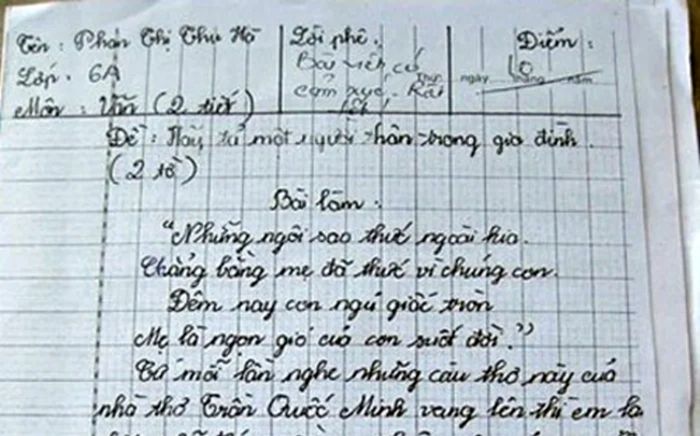 Tên : Phan Thị Thu Hà
Lời phê :
Điểm :
Lớp : 6A
Bài viết có
cảm xúc. Rất
tốt!
10
ngày tháng năm
Môn : Văn (2 tiết)
Đề : Hãy tả một người thân trong gia đình.
(2 tờ)
Bài làm :
"Những ngôi sao thức ngoài kia
Chẳng bằng mẹ đã thức vì chúng con
Đêm nay con ngủ giấc tròn
Mẹ là ngọn gió của con suốt đời."
Cứ mỗi lần nghe những câu thơ này của
nhà thơ Trần Quốc Minh vang lên thì em lạ